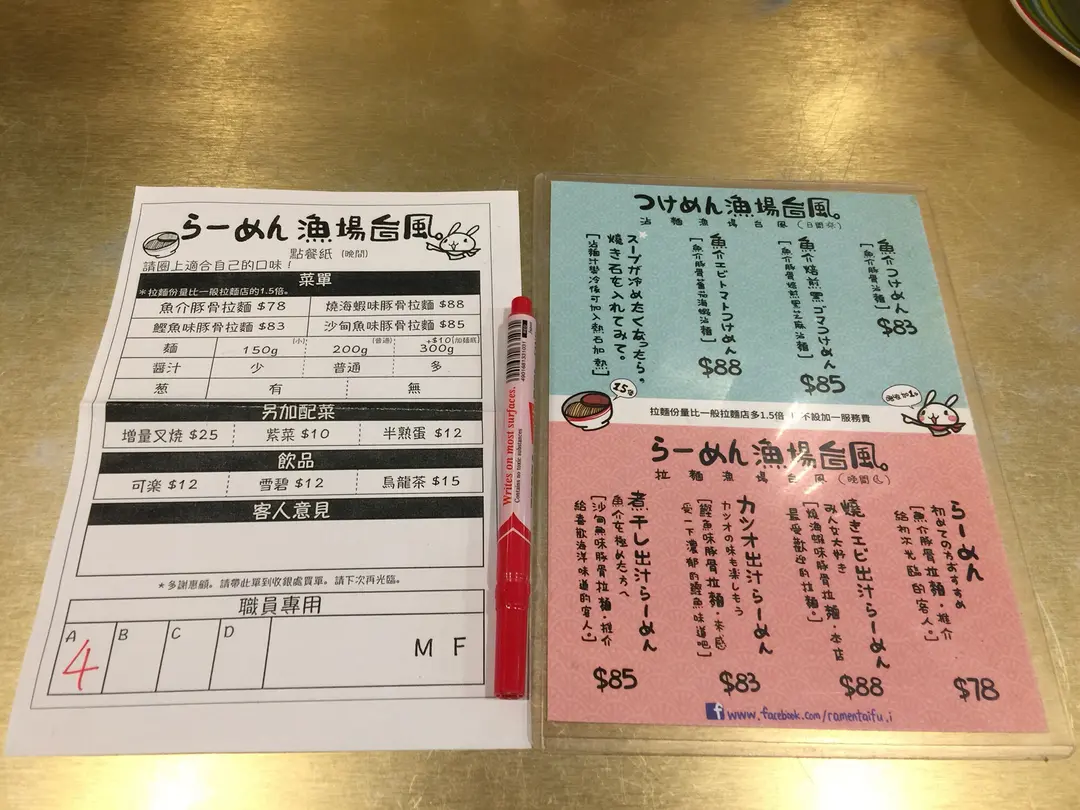 らーめん 漁場台風。
點餐紙 (晚間)
請圈上適合自己的口味！
菜單
＊拉麵份量比一般拉麵店的1.5倍。
魚介豚骨拉麵 $78 燒海蝦味豚骨拉麵 $88
鰹魚味豚骨拉麵 $83 沙甸魚味豚骨拉麵 $85
麵 150g (小) 200g (普通) 300g +$10(加麵底)
醬汁 少 普通 多
葱 有 無
另加配菜
增量叉燒 $25 紫菜 $10 半熟蛋 $12
飲品
可樂 $12 雪碧 $12 烏龍茶 $15
客人意見
＊多謝惠顧。請帶此單到收銀處買單。請下次再光臨。
職員專用
A B C D
4
M F
4901681331031
Writes on most surfaces.
Contains no toxic substances
つけめん 漁場台風。
沾麵漁場台風 (日間)
魚介つけめん
[魚介豚骨沾麵]
$83
魚介焙煎黒ゴマつけめん
[魚介豚骨焙煎黑芝麻沾麵]
$85
魚介エビトマトつけめん
[魚介豚骨蕃茄海蝦沾麵]
$88
＊スープが冷めたくなったら。
焼き石を入れてみて。
[沾麵汁變冷後可加入熱石加熱]
1.5倍
拉麵份量比一般拉麵店多1.5倍 不設加一服務費
らーめん 漁場台風。
拉麵漁場台風 (晚間)
らーめん
初めての方おすすめ
[魚介豚骨拉麵・推介
給初次光臨的客人。]
$78
燒きエビ出汁らーめん
みんな大好き
[燒海蝦味豚骨拉麵・本店
最受歡迎的拉麵。]
$88
カツオ出汁らーめん
カツオの味も楽しもう
[鰹魚味豚骨拉麵・來感
受一下濃郁的鰹魚味道吧]
$83
煮干し出汁らーめん
魚介を極めた方へ
[沙甸魚味豚骨拉麵・推介
給喜歡海洋味道的客人。]
$85
www.facebook.com/ramentaifu.i